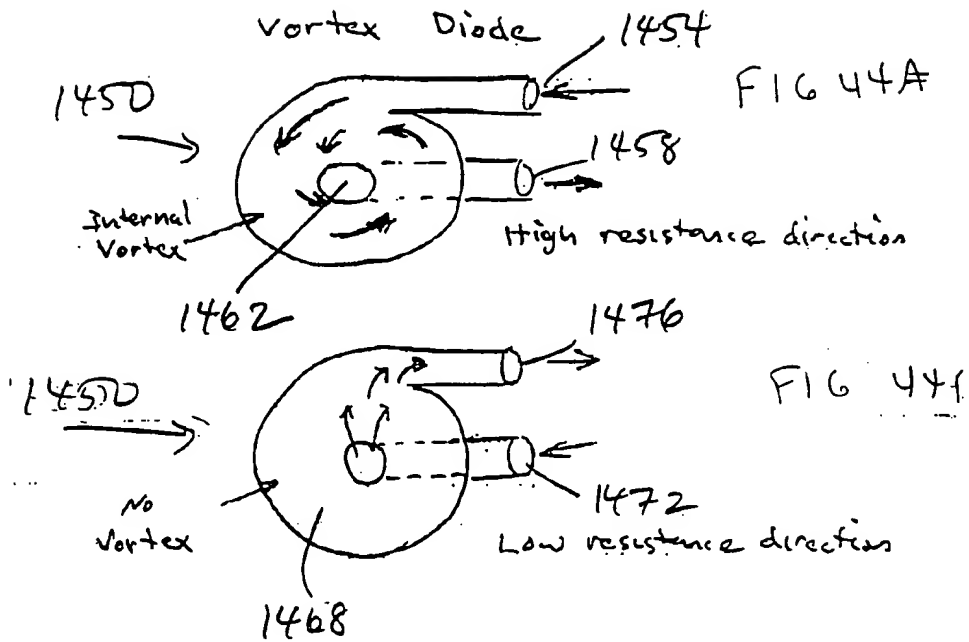 Vortex Diode
1454
FIG 44A
1450
1458
Internal
Vortex
High resistance direction
1462
1476
1450
FIG
No
Vortex
1472
Low resistance direction
1468